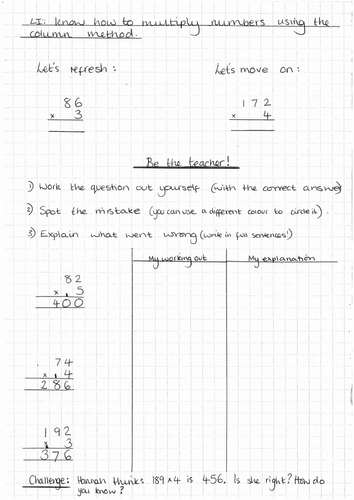 LI: Know how to multiply numbers using the
column method.
Let's refresh: Let's move on:
86 172
x 3 x 4
Be the teacher!
1) Work the question out yourself (with the correct answer)
2) Spot the mistake (you can use a different colour to circle it).
3) Explain what went wrong (write in full sentences!)
My working out My explanation
82
x 5
400
74
x 4
286
192
x 3
376
Challenge: Hannah thinks 189 x 4 is 456. Is she right? How do
you know?